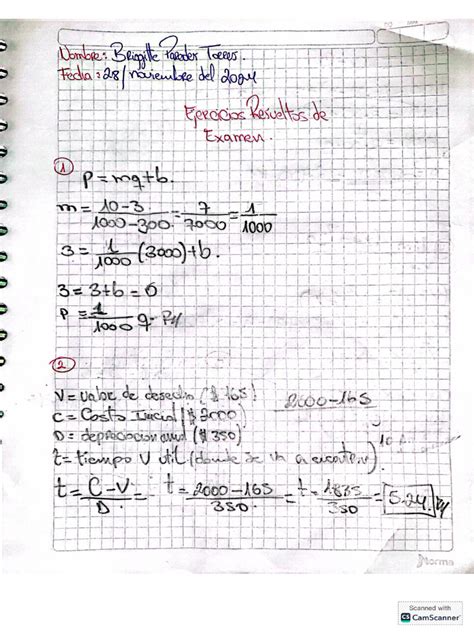 Nombre: Briggitte Paredes Torres.
Fecha: 28/noviembre del 2024
Ejercicios Resueltos de
Examen.
1
P = mq+b.
m = 10-3 / 1000-300 = 7 / 7000 = 1 / 1000
3 = 1 / 1000 (3000)+b.
3 = 3+b = 0
P = 1 / 1000 q
2
V = valor de desecho ($ 165)
2000-165
C = Costo Inicial ($ 2000)
D = depreciación anual ($ 350)
t = tiempo V util (donde se va a
t = C-V / D = t = 2000-165 / 350 = t = 1835 / 350 = 5.24
norma
Scanned with
CS CamScanner